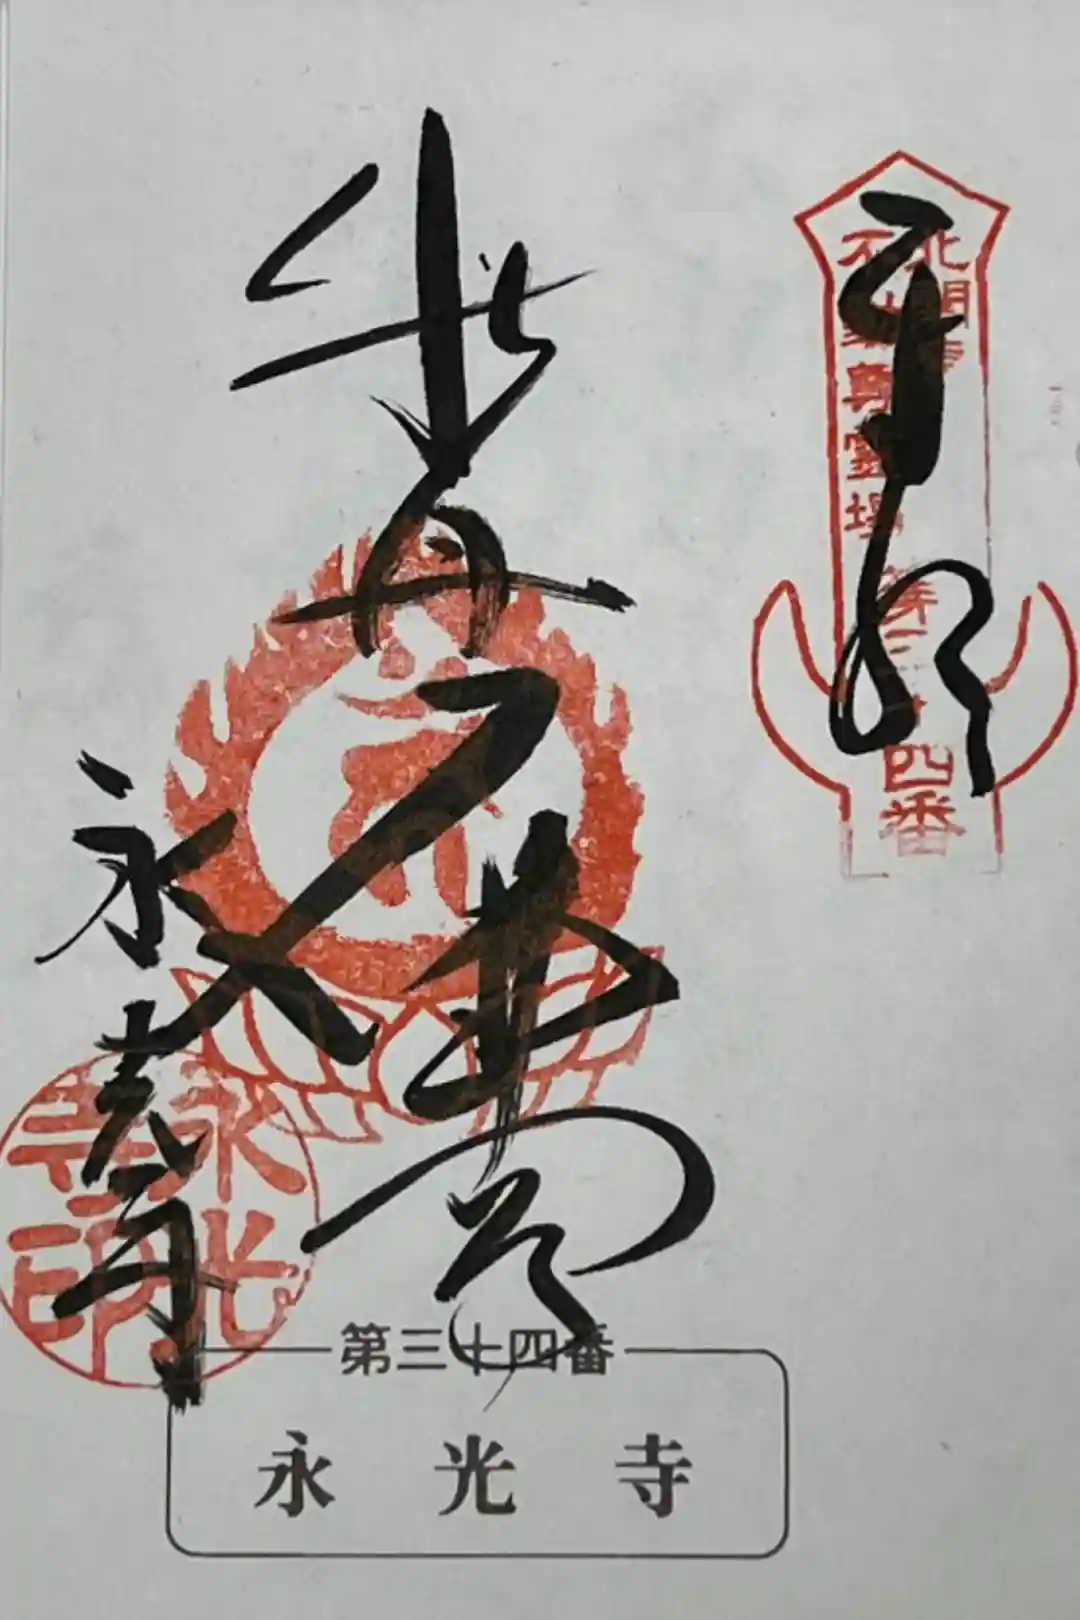 奉拝
北関東
不動尊霊場
第三十四番
不動尊
永光寺
永光
寺印
第三十四番
永光寺